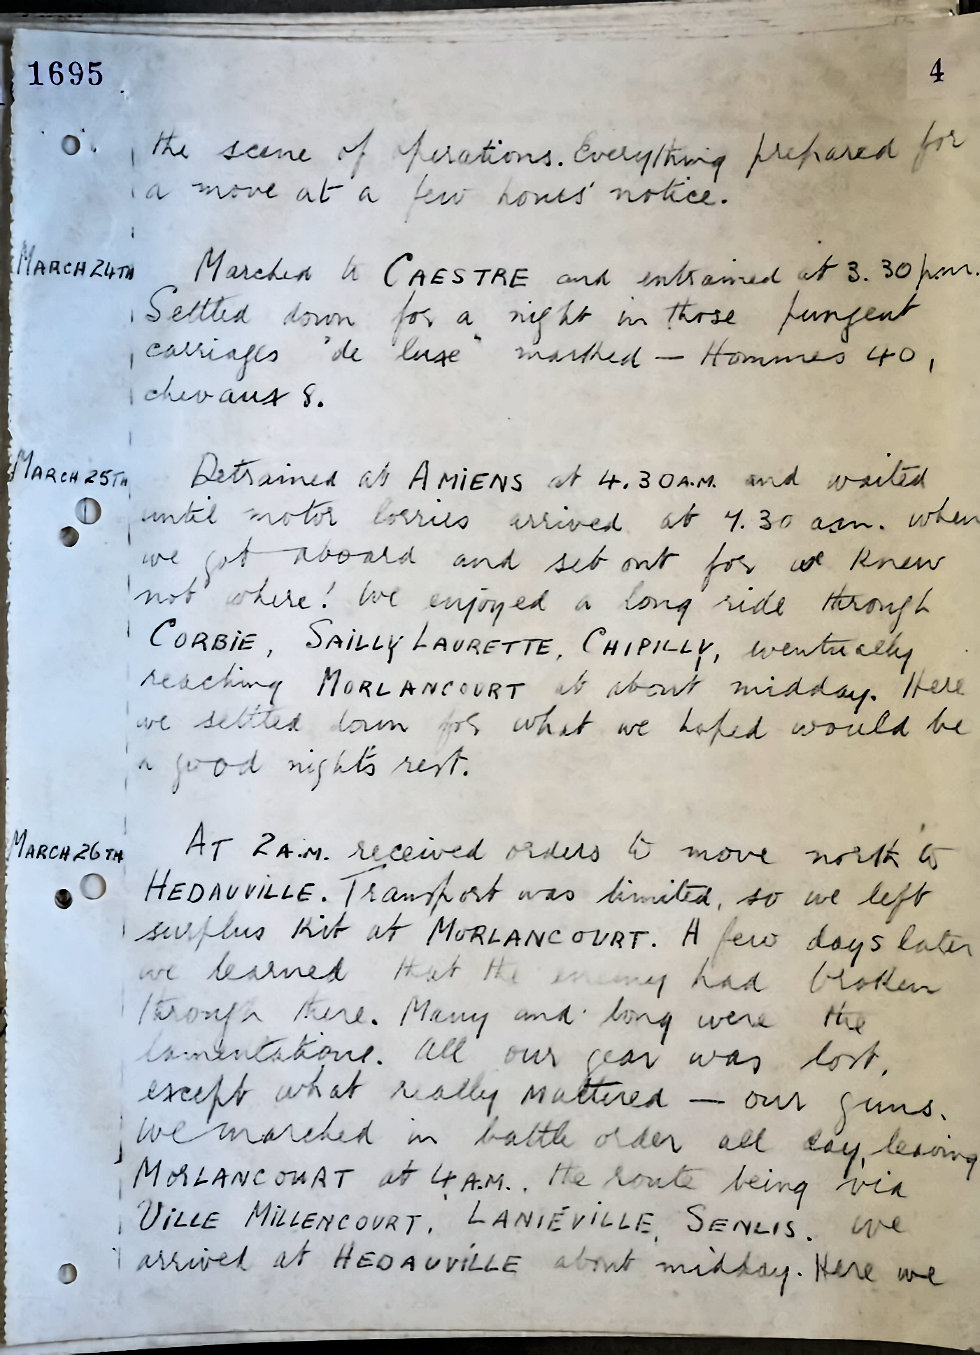 1695
4
the scene of operations. Everything prepared for
a move at a few hours' notice.
MARCH 24TH Marched to CAESTRE and entrained at 3.30 p.m.
Settled down for a night in those pungent
carriages "de luxe" marked — Hommes 40,
chevaux 8.
MARCH 25TH Detrained at AMIENS at 4.30 A.M. and waited
until motor lorries arrived at 7.30 a.m. when
we got aboard and set out for we knew
not where! We enjoyed a long ride through
CORBIE, SAILLY LAURETTE, CHIPILLY, eventually
reaching MORLANCOURT at about midday. Here
we settled down for what we hoped would be
a good night's rest.
MARCH 26TH AT 2 A.M. received orders to move north to
HEDAUVILLE. Transport was limited, so we left
surplus kit at MORLANCOURT. A few days later
we learned that the enemy had broken
through there. Many and long were the
lamentations. All our gear was lost,
except what really mattered — our guns.
We marched in battle order all day, leaving
MORLANCOURT at 4 A.M., the route being via
VILLE MILLENCOURT, LANIÉVILLE, SENLIS. We
arrived at HEDAUVILLE about midday. Here we